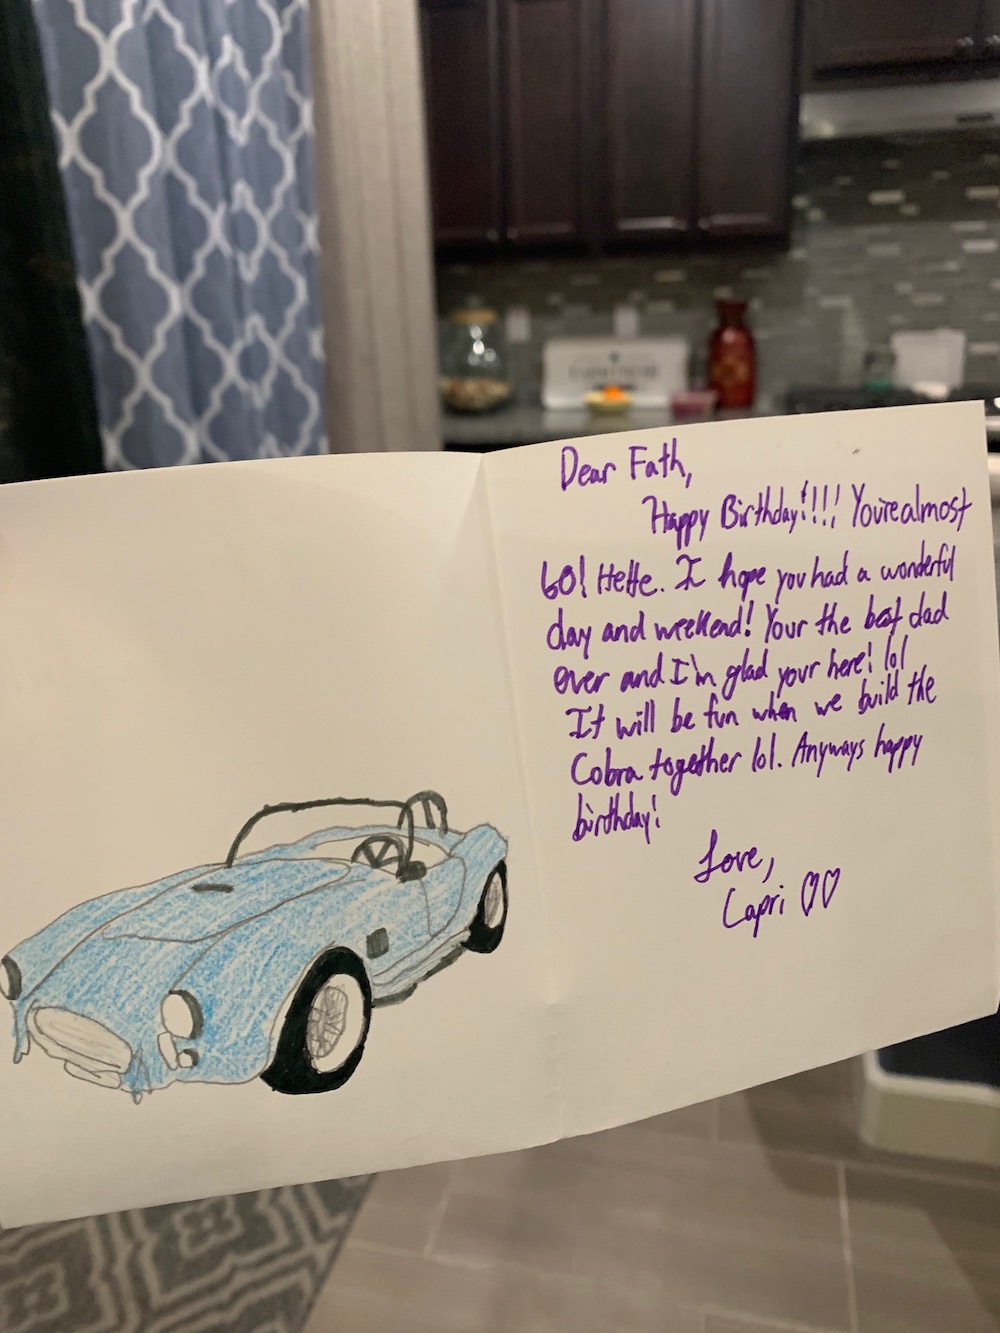 Dear Fath,
Happy Birthday!!!! You're almost
60! HeHe. I hope you had a wonderful
day and weekend! Your the best dad
ever and I'm glad your here! lol
It will be fun when we build the
Cobra together lol. Anyways happy
birthday!
Love,
Capri ♡♡